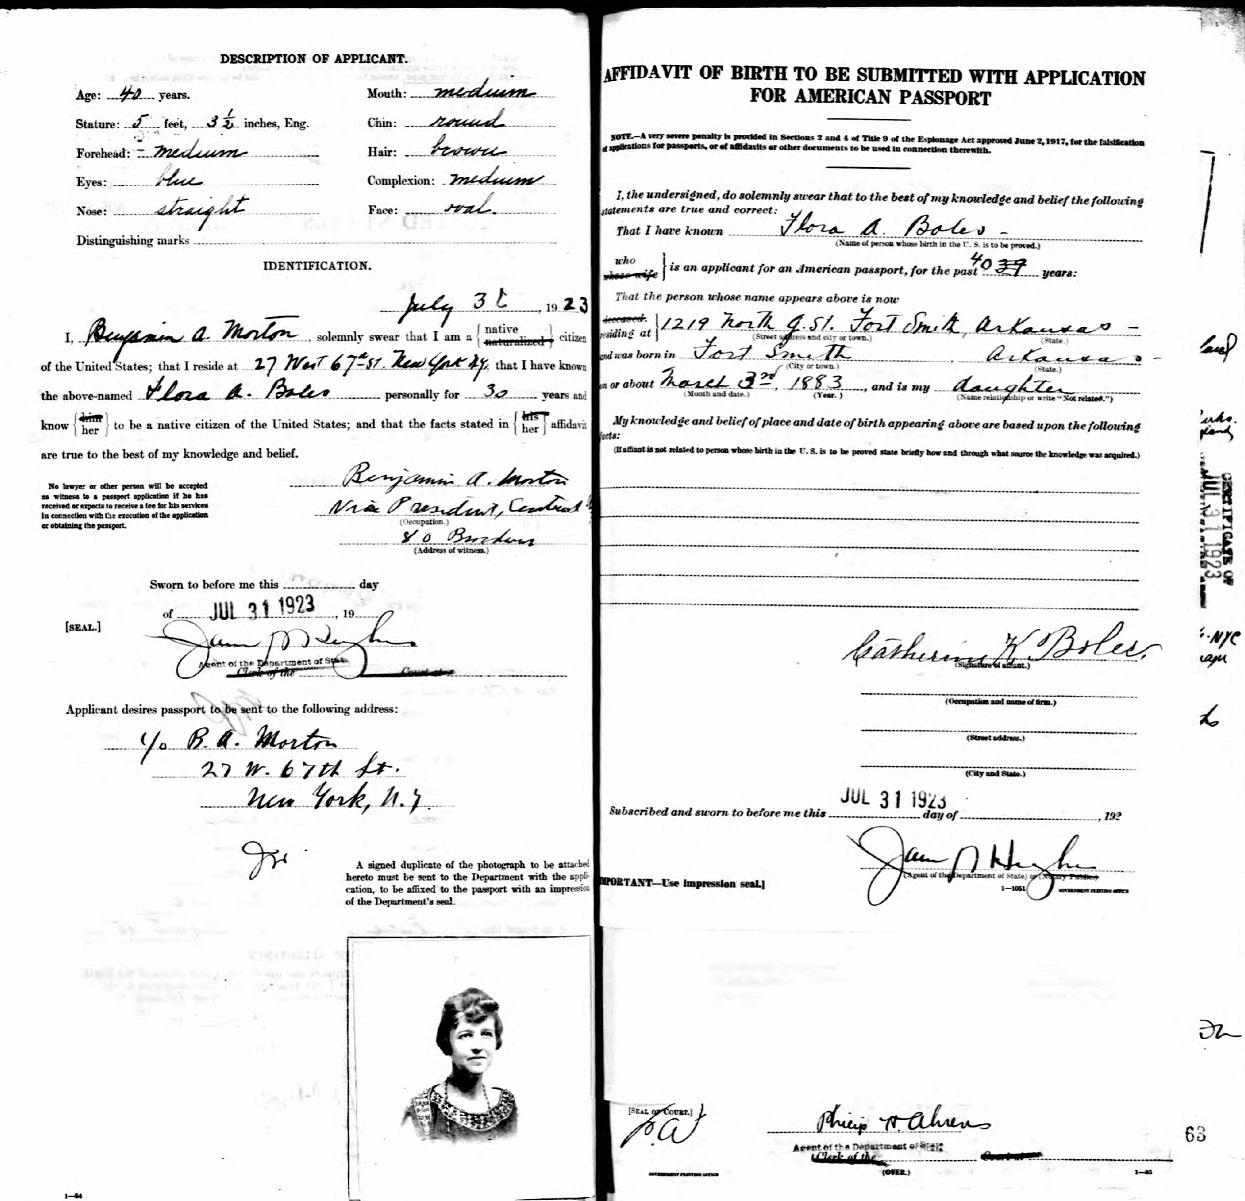 DESCRIPTION OF APPLICANT.
Age: 40 years.
Mouth: medium
Stature: 5 feet, 3 ½ inches, Eng.
Chin: round
Forehead: medium
Hair: brown
Eyes: blue
Complexion: medium
Nose: straight
Face: oval.
Distinguishing marks
IDENTIFICATION.
July 31, 1923
I, Benjamin A. Morton, solemnly swear that I am a {native naturalized} citizen
of the United States; that I reside at 27 West 67th St. New York N.Y. that I have known
the above-named Flora A. Boles personally for 30 years and
know {him her} to be a native citizen of the United States; and that the facts stated in {his her} affidavit
are true to the best of my knowledge and belief.
No lawyer or other person will be accepted
as witness to a passport application if he has
received or expects to receive a fee for his services
in connection with the execution of the application
or obtaining the passport.
Benjamin A. Morton
Vice President, Central
(Occupation.)
80 Broadway
(Address of witness.)
Sworn to before me this day
of JUL 31 1923, 19
[SEAL.]
Agent of the Department of State
Clerk of the Court at
Applicant desires passport to be sent to the following address:
c/o B. A. Morton
27 W. 67th St.
New York, N.Y.
A signed duplicate of the photograph to be attached
hereto must be sent to the Department with the appli-
cation, to be affixed to the passport with an impression
of the Department's seal.
1—64
AFFIDAVIT OF BIRTH TO BE SUBMITTED WITH APPLICATION
FOR AMERICAN PASSPORT
NOTE.—A very severe penalty is provided in Sections 2 and 4 of Title 9 of the Espionage Act approved June 2, 1917, for the falsification
of applications for passports, or of affidavits or other documents to be used in connection therewith.
I, the undersigned, do solemnly swear that to the best of my knowledge and belief the following
statements are true and correct:
That I have known Flora A. Boles -
(Name of person whose birth in the U. S. is to be proved.)
who whose wife } is an applicant for an American passport, for the past 40 39 years:
That the person whose name appears above is now
deceased. residing at } 1219 North G. St. Fort Smith, Arkansas -
(Street address and city or town.) (State.)
and was born in Fort Smith Arkansas -
(City or town.) (State.)
on or about March 3rd, 1883, and is my daughter
(Month and date.) (Year.) (Name relationship or write "Not related.")
My knowledge and belief of place and date of birth appearing above are based upon the following
facts:
(If affiant is not related to person whose birth in the U. S. is to be proved state briefly how and through what source the knowledge was acquired.)
Catherine K. Boles.
(Signature of affiant.)
(Occupation and name of firm.)
(Street address.)
(City and State.)
Subscribed and sworn to before me this JUL 31 1923 day of , 192
(Agent of the Department of State) or (Notary Public)
IMPORTANT—Use impression seal.]
1—1051
GOVERNMENT PRINTING OFFICE
[SEAL OF COURT.]
Philip H. Ahrens
Agent of the Department of State
Clerk of the Court at
GOVERNMENT PRINTING OFFICE
(OVER.)
1—65
CERTIFICATE OF
JUL 31 1923
NYC
63